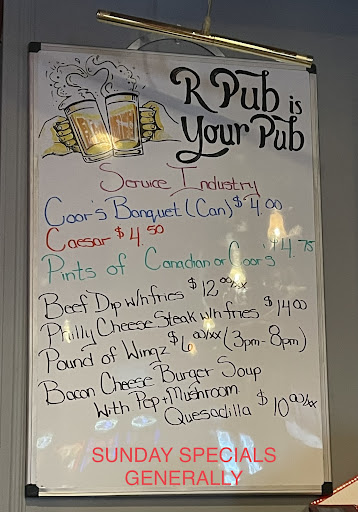 R Pub is
Your Pub
Service Industry
Coor's Banquet (Can) $4.00
Caesar $4.50
Pints of Canadian or Coor's $4.75
Beef Dip w/n fries $12.00/xx
Philly Cheese Steak w/n fries $14.00
Pound of Wingz $6.00/xx (3pm-8pm)
Bacon Cheese Burger Soup
With Pep + Mushroom
Quesadilla $10.00/xx
SUNDAY SPECIALS
GENERALLY